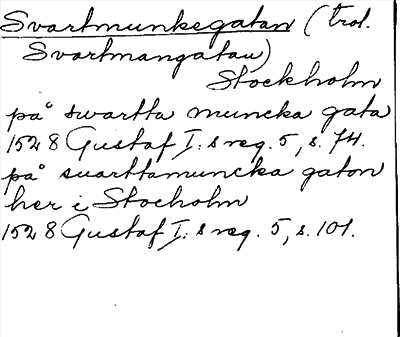 Svartmunkegatan (trol.
Svartmangatan)
Stockholm
på swartta muncka gata
1528 Gustaf I:s reg. 5, s. 74.
på suarttamuncka gaton
her i Stocholm
1528 Gustaf I:s reg. 5, s. 101.